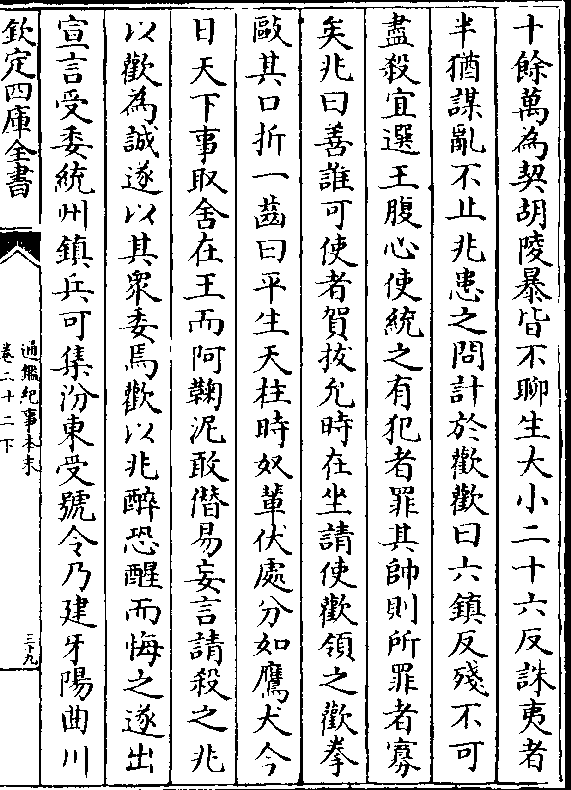 十餘萬為契胡陵暴皆不聊生大小二十六反誅夷者
半猶謀亂不止兆患之問計於歡歡曰六鎮反殘不可
盡殺宜選王腹心使統之有犯者罪其帥則所罪者寡
矣兆曰善誰可使者賀拔允時在坐請使歡領之歡拳
毆其口折一齒曰平生天柱時奴輩伏處分如鷹犬今
日天下事取舍在王而阿鞠泥敢僭易妄言請殺之兆
以歡為誠遂以其衆委焉歡以兆醉恐醒而悔之遂出
宣言受委統州鎮兵可集汾東受號令乃建牙陽曲川
欽定四庫全書
通鑑紀事本末
卷二十二下
三十九